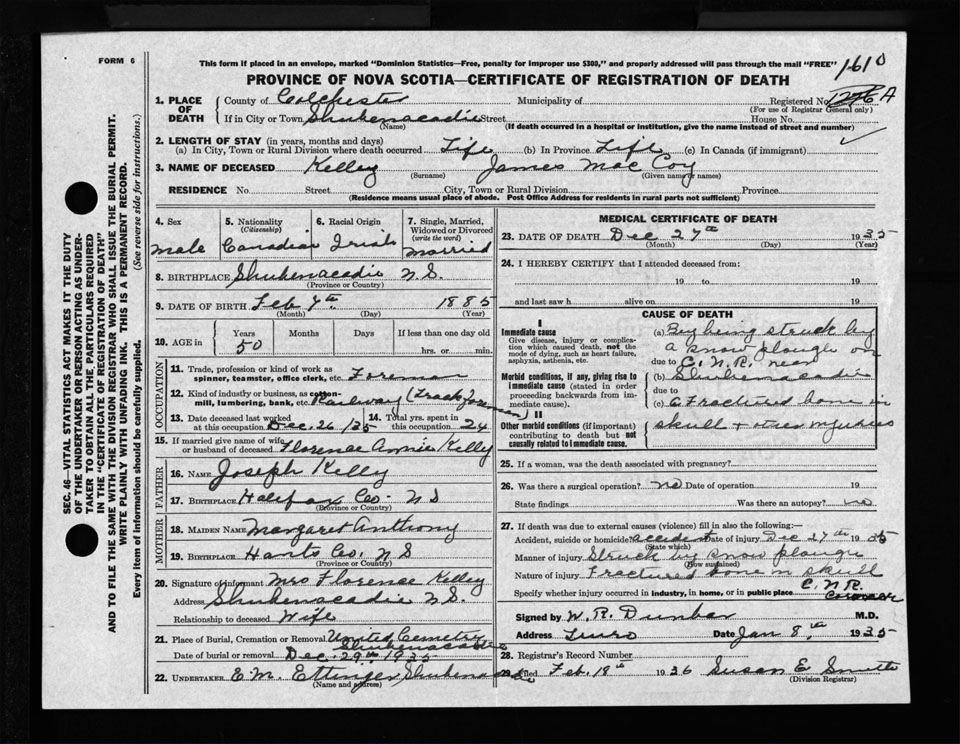 FORM 6
This form if placed in an envelope, marked "Dominion Statistics—Free, penalty for improper use $300," and properly addressed will pass through the mail "FREE"
1610
PROVINCE OF NOVA SCOTIA—CERTIFICATE OF REGISTRATION OF DEATH
1. PLACE OF DEATH
County of Colchester Municipality of Registered No. A
(For use of Registrar General only)
If in City or Town Shubenacadie Street House No.
(Name) (If death occurred in a hospital or institution, give the name instead of street and number)
2. LENGTH OF STAY (in years, months and days)
(a) In City, Town or Rural Division where death occurred Life (b) In Province Life (c) In Canada (if immigrant)
3. NAME OF DECEASED Kelley James Mac Coy
(Surname) (Given name or names)
RESIDENCE No Street City, Town or Rural Division Province
(Residence means usual place of abode. Post Office Address for residents in rural parts not sufficient)
4. Sex
male
5. Nationality
(Citizenship)
Canadian
6. Racial Origin
Irish
7. Single, Married, Widowed or Divorced
(write the word)
married
8. BIRTHPLACE Shubenacadie N.S.
(Province or Country)
9. DATE OF BIRTH Feb 7th 1885
(Month) (Day) (Year)
10. AGE in
Years Months Days If less than one day old
50 hrs. or min.
OCCUPATION
11. Trade, profession or kind of work as
spinner, teamster, office clerk, etc. Foreman
12. Kind of industry or business, as cotton-
mill, lumbering, bank, etc. Railway (Track Foreman)
13. Date deceased last worked
at this occupation Dec. 26/35
14. Total yrs. spent in
this occupation 24
15. If married give name of wife
or husband of deceased Florence Annie Kelly
FATHER
16. NAME Joseph Kelly
17. BIRTHPLACE Halifax Co. N S
(Province or Country)
MOTHER
18. MAIDEN NAME Margaret Anthony
19. BIRTHPLACE Hants Co. N S
(Province or Country)
20. Signature of informant Mrs Florence Kelley
Address Shubenacadie N.S.
Relationship to deceased Wife
21. Place of Burial, Cremation or Removal United Cemetry
Shubenacadie
Date of burial or removal Dec. 29th 1935
22. UNDERTAKER E.M. Ettinger, Shubenacadie
(Name and address)
MEDICAL CERTIFICATE OF DEATH
23. DATE OF DEATH Dec 27th 1935
(Month) (Day) (Year)
24. I HEREBY CERTIFY that I attended deceased from:
19 to 19
and last saw h alive on 19
CAUSE OF DEATH
I
Immediate cause
Give disease, injury or complica-
tion which caused death, not the
mode of dying, such as heart failure,
asphyxia, asthenia, etc.
(a) By being struck by
a snow plough on
due to C.N.R. near
Morbid conditions, if any, giving rise to
immediate cause (stated in order
proceeding backwards from im-
mediate cause).
(b) Shubenacadie
due to
(c) Fractured bone in
II
Other morbid conditions (if important)
contributing to death but not
causally related to immediate cause.
skull + other injuries
25. If a woman, was the death associated with pregnancy?
26. Was there a surgical operation? no Date of operation 19
State findings Was there an autopsy? no
27. If death was due to external causes (violence) fill in also the following:—
Accident, suicide or homicide accident Date of injury Dec 27th 1935
(State which)
Manner of injury Struck by snow plough
(How sustained)
Nature of injury Fractured bone in skull
Specify whether injury occurred in industry, in home, or in public place C.N.R.
Coroner
Signed by W. R. Dunbar M.D.
Address Truro Date Jan 8th 1935
28. Registrar's Record Number
29. Filed Feb. 18th 1936 Susan E
(Division Registrar)
SEC. 46—VITAL STATISTICS ACT MAKES IT THE DUTY
OF THE UNDERTAKER OR PERSON ACTING AS UNDER-
TAKER TO OBTAIN ALL THE PARTICULARS REQUIRED
IN THE "CERTIFICATE OF REGISTRATION OF DEATH"
AND TO FILE THE SAME WITH THE DIVISION REGISTRAR WHO SHALL ISSUE THE BURIAL PERMIT.
WRITE PLAINLY WITH UNFADING INK. THIS IS A PERMANENT RECORD.
Every item of information should be carefully supplied. (See reverse side for instructions.)